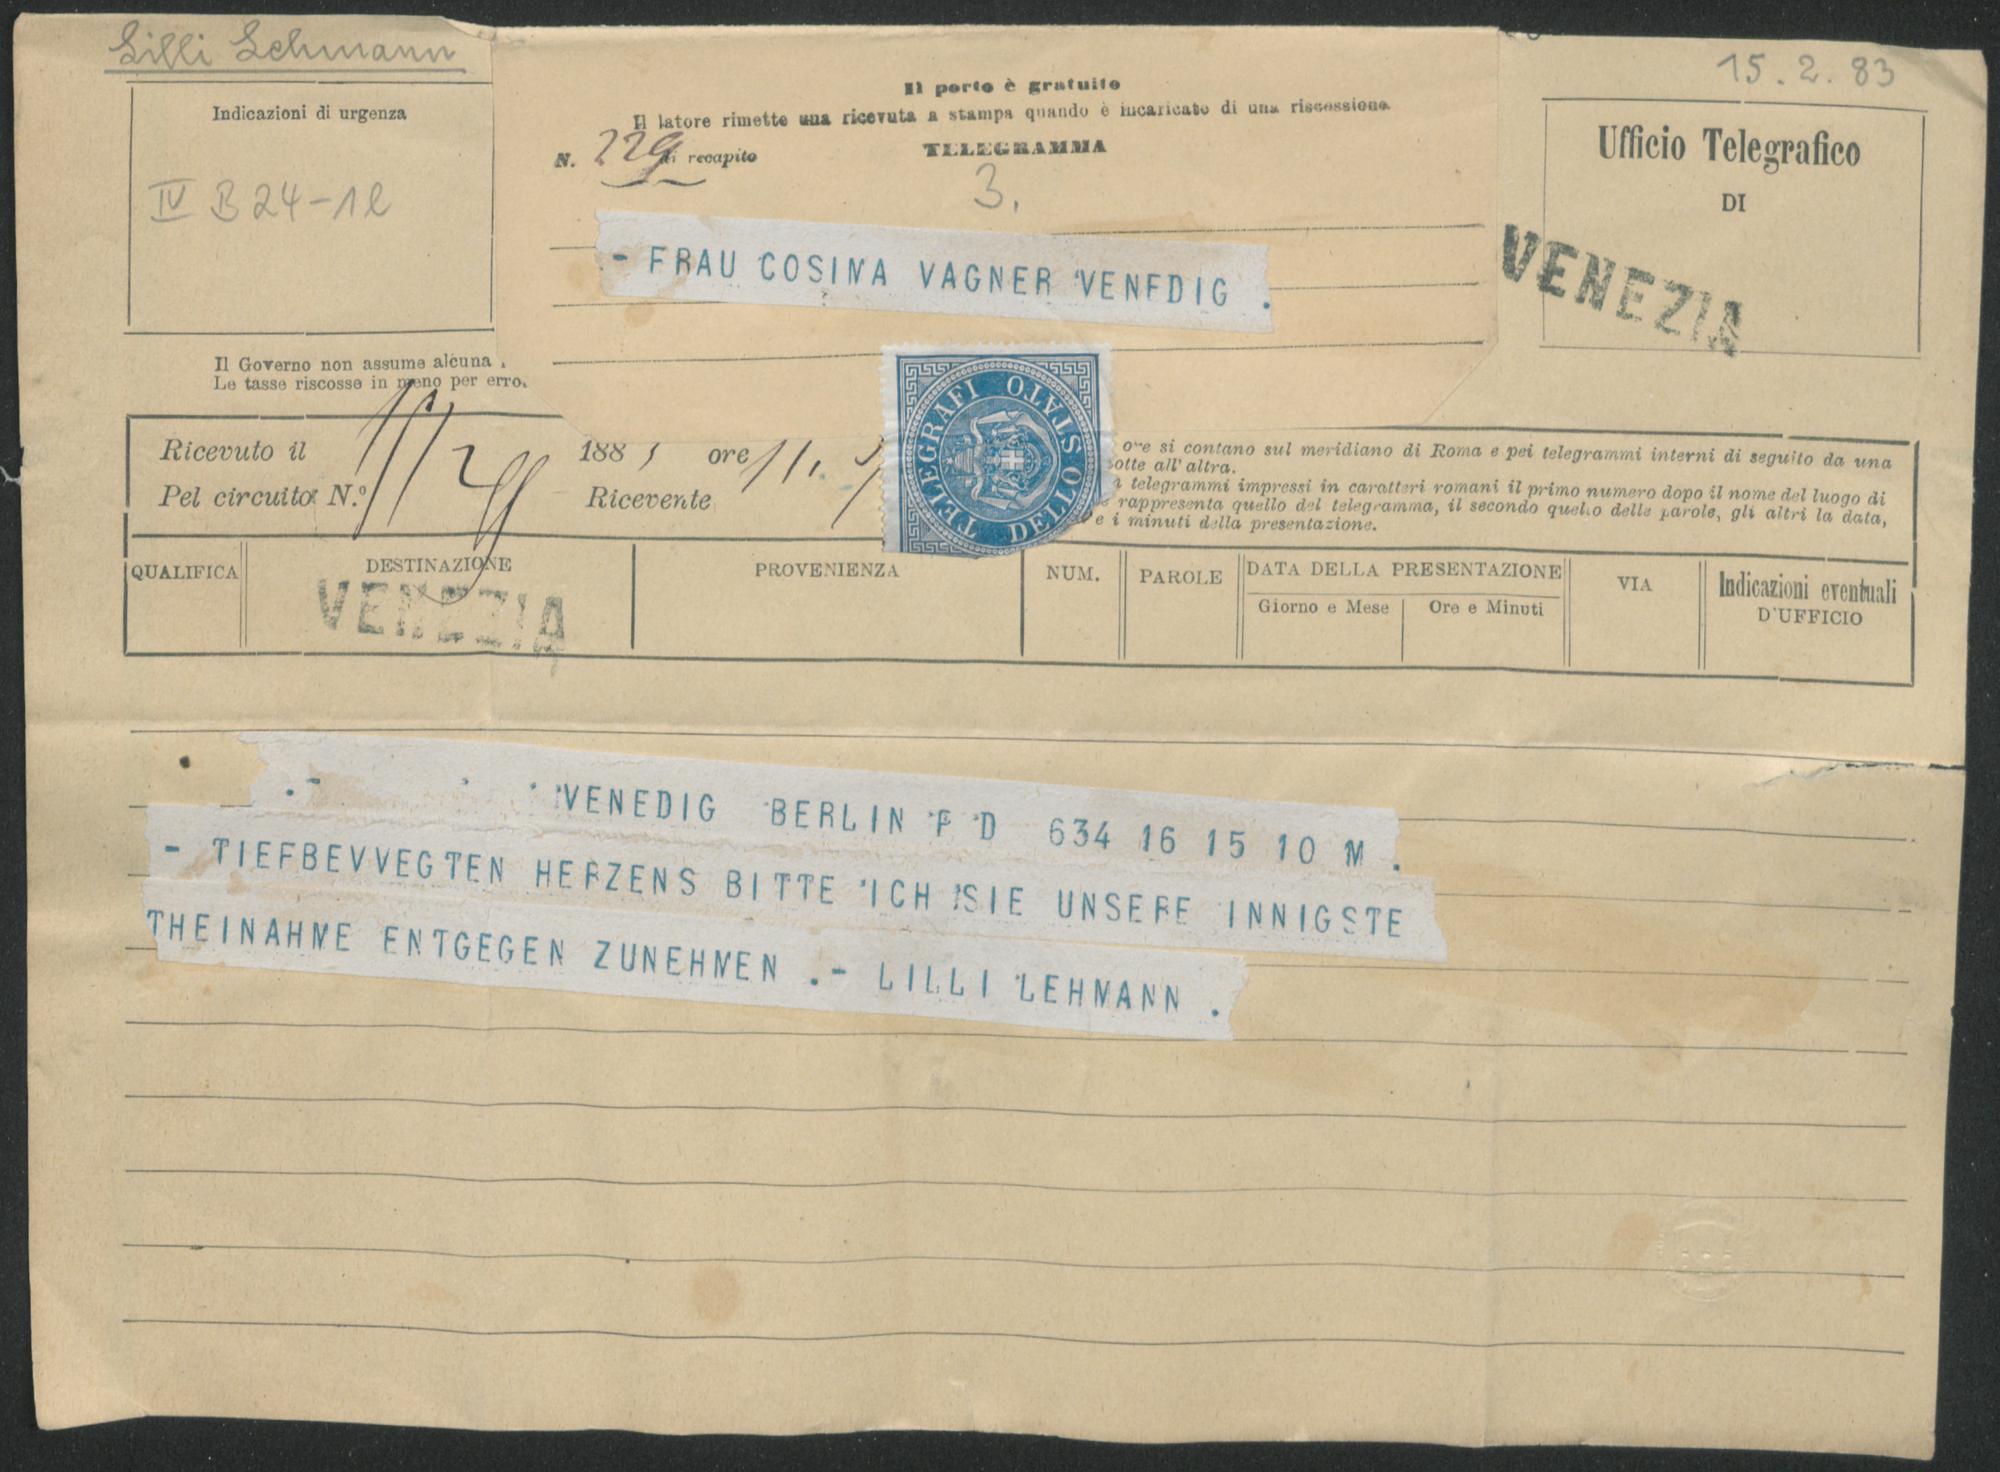 Lilli Lehmann
15. 2. 83
Indicazioni di urgenza
IV B 24-12
Il porto è gratuito
Il latore rimette una ricevuta a stampa quando è incaricato di una riscossione
N. 229 di recapito
TELEGRAMMA
3.
- FRAU COSINA VAGNER VENEDIG .
Ufficio Telegrafico
DI
VENEZIA
Il Governo non assume alcuna
Le tasse riscosse in meno per erro
TELEGRAFI DELLO STATO
Ricevuto il
1883 ore
Pel circuito N.º
Ricevente
ore si contano sul meridiano di Roma e pei telegrammi interni di seguito da una
otte all'altra.
telegrammi impressi in caratteri romani il primo numero dopo il nome del luogo di
rappresenta quello del telegramma, il secondo quello delle parole, gli altri la data,
e i minuti della presentazione.
QUALIFICA
DESTINAZIONE
PROVENIENZA
NUM.
PAROLE
DATA DELLA PRESENTAZIONE
Giorno e Mese
Ore e Minuti
VIA
Indicazioni eventuali
D'UFFICIO
VENEZIA
.- VENEDIG BERLIN F D 634 16 15 10 M .
- TIEFBEVVEGTEN HERZENS BITTE ICH SIE UNSERE INNIGSTE
THEINAHME ENTGEGEN ZUNEHMEN .- LILLI LEHMANN .